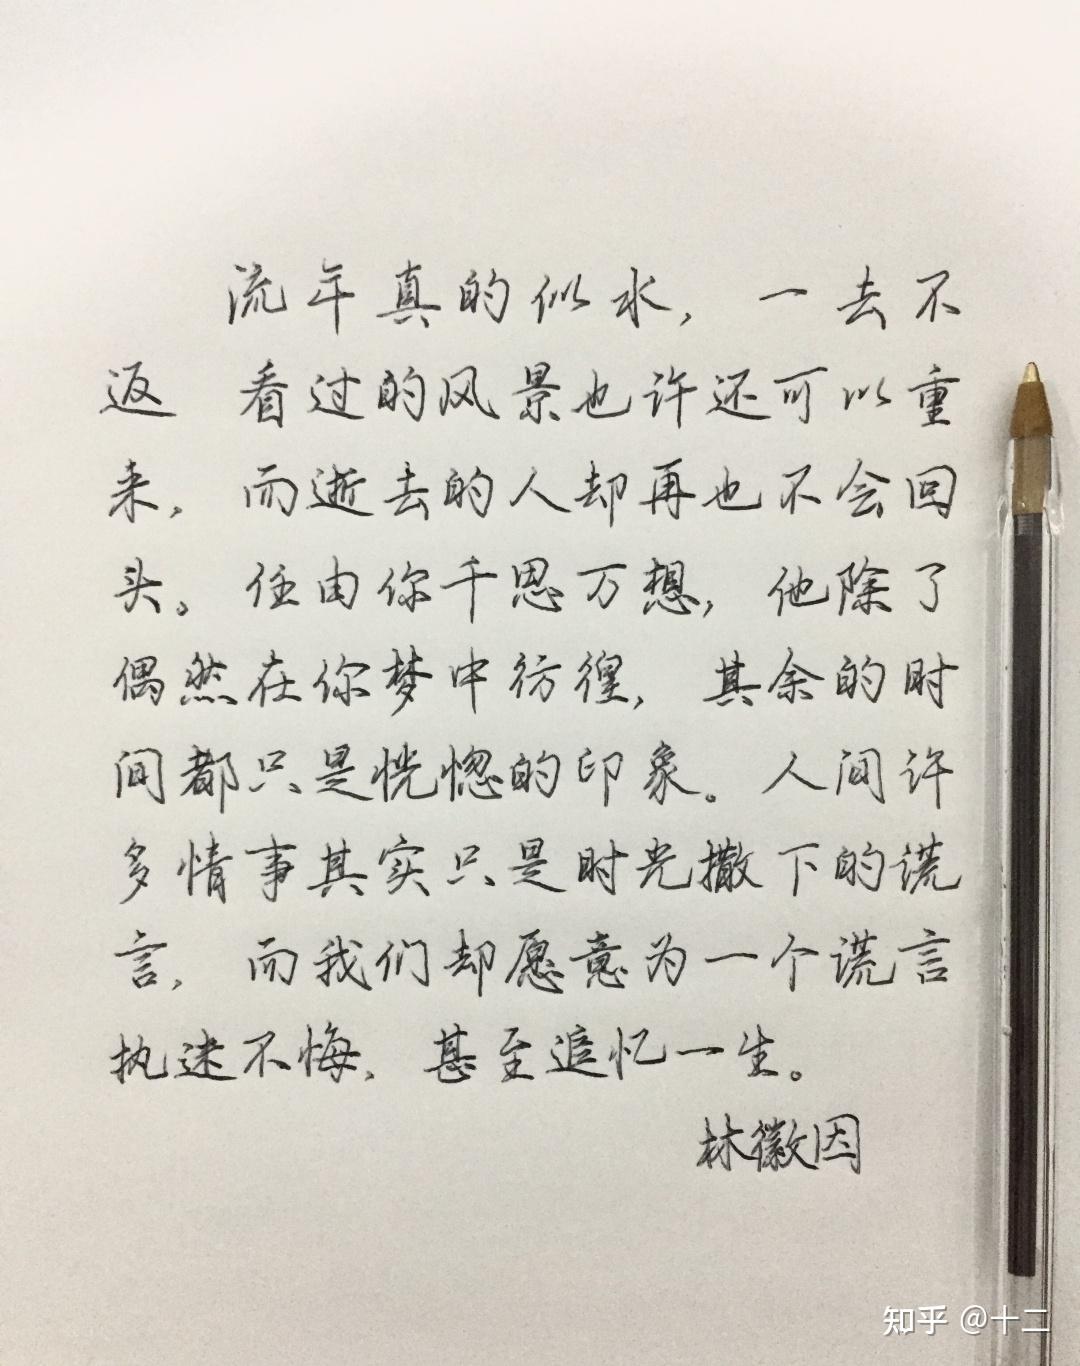 流年真的似水，一去不
返 看过的风景也许还可以重
来，而逝去的人却再也不会回
头。任由你千思万想，他除了
偶然在你梦中彷徨，其余的时
间都只是恍惚的印象。人间许
多情事其实只是时光撒下的谎
言，而我们却愿意为一个谎言
执迷不悔，甚至追忆一生。
林徽因
知乎 @十二